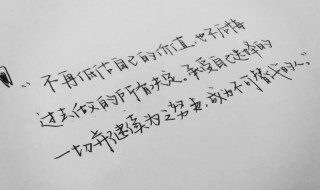 “不再低估自己的价值,也不后悔
过去做出的所有决定。承受自己选择的
一切并继续为之努力,成为不可替代的人。”